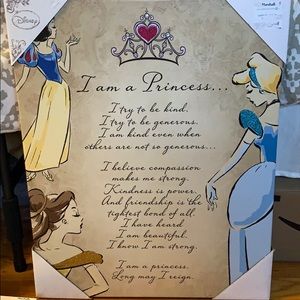 Disney
Marshalls
I am a Princess...
I try to be kind.
I try to be generous.
I am kind even when
others are not so generous...
I believe compassion
makes me strong.
Kindness is power.
And friendship is the
tightest bond of all.
I have heard
I am beautiful.
I know I am strong.
I am a princess.
Long may I reign.